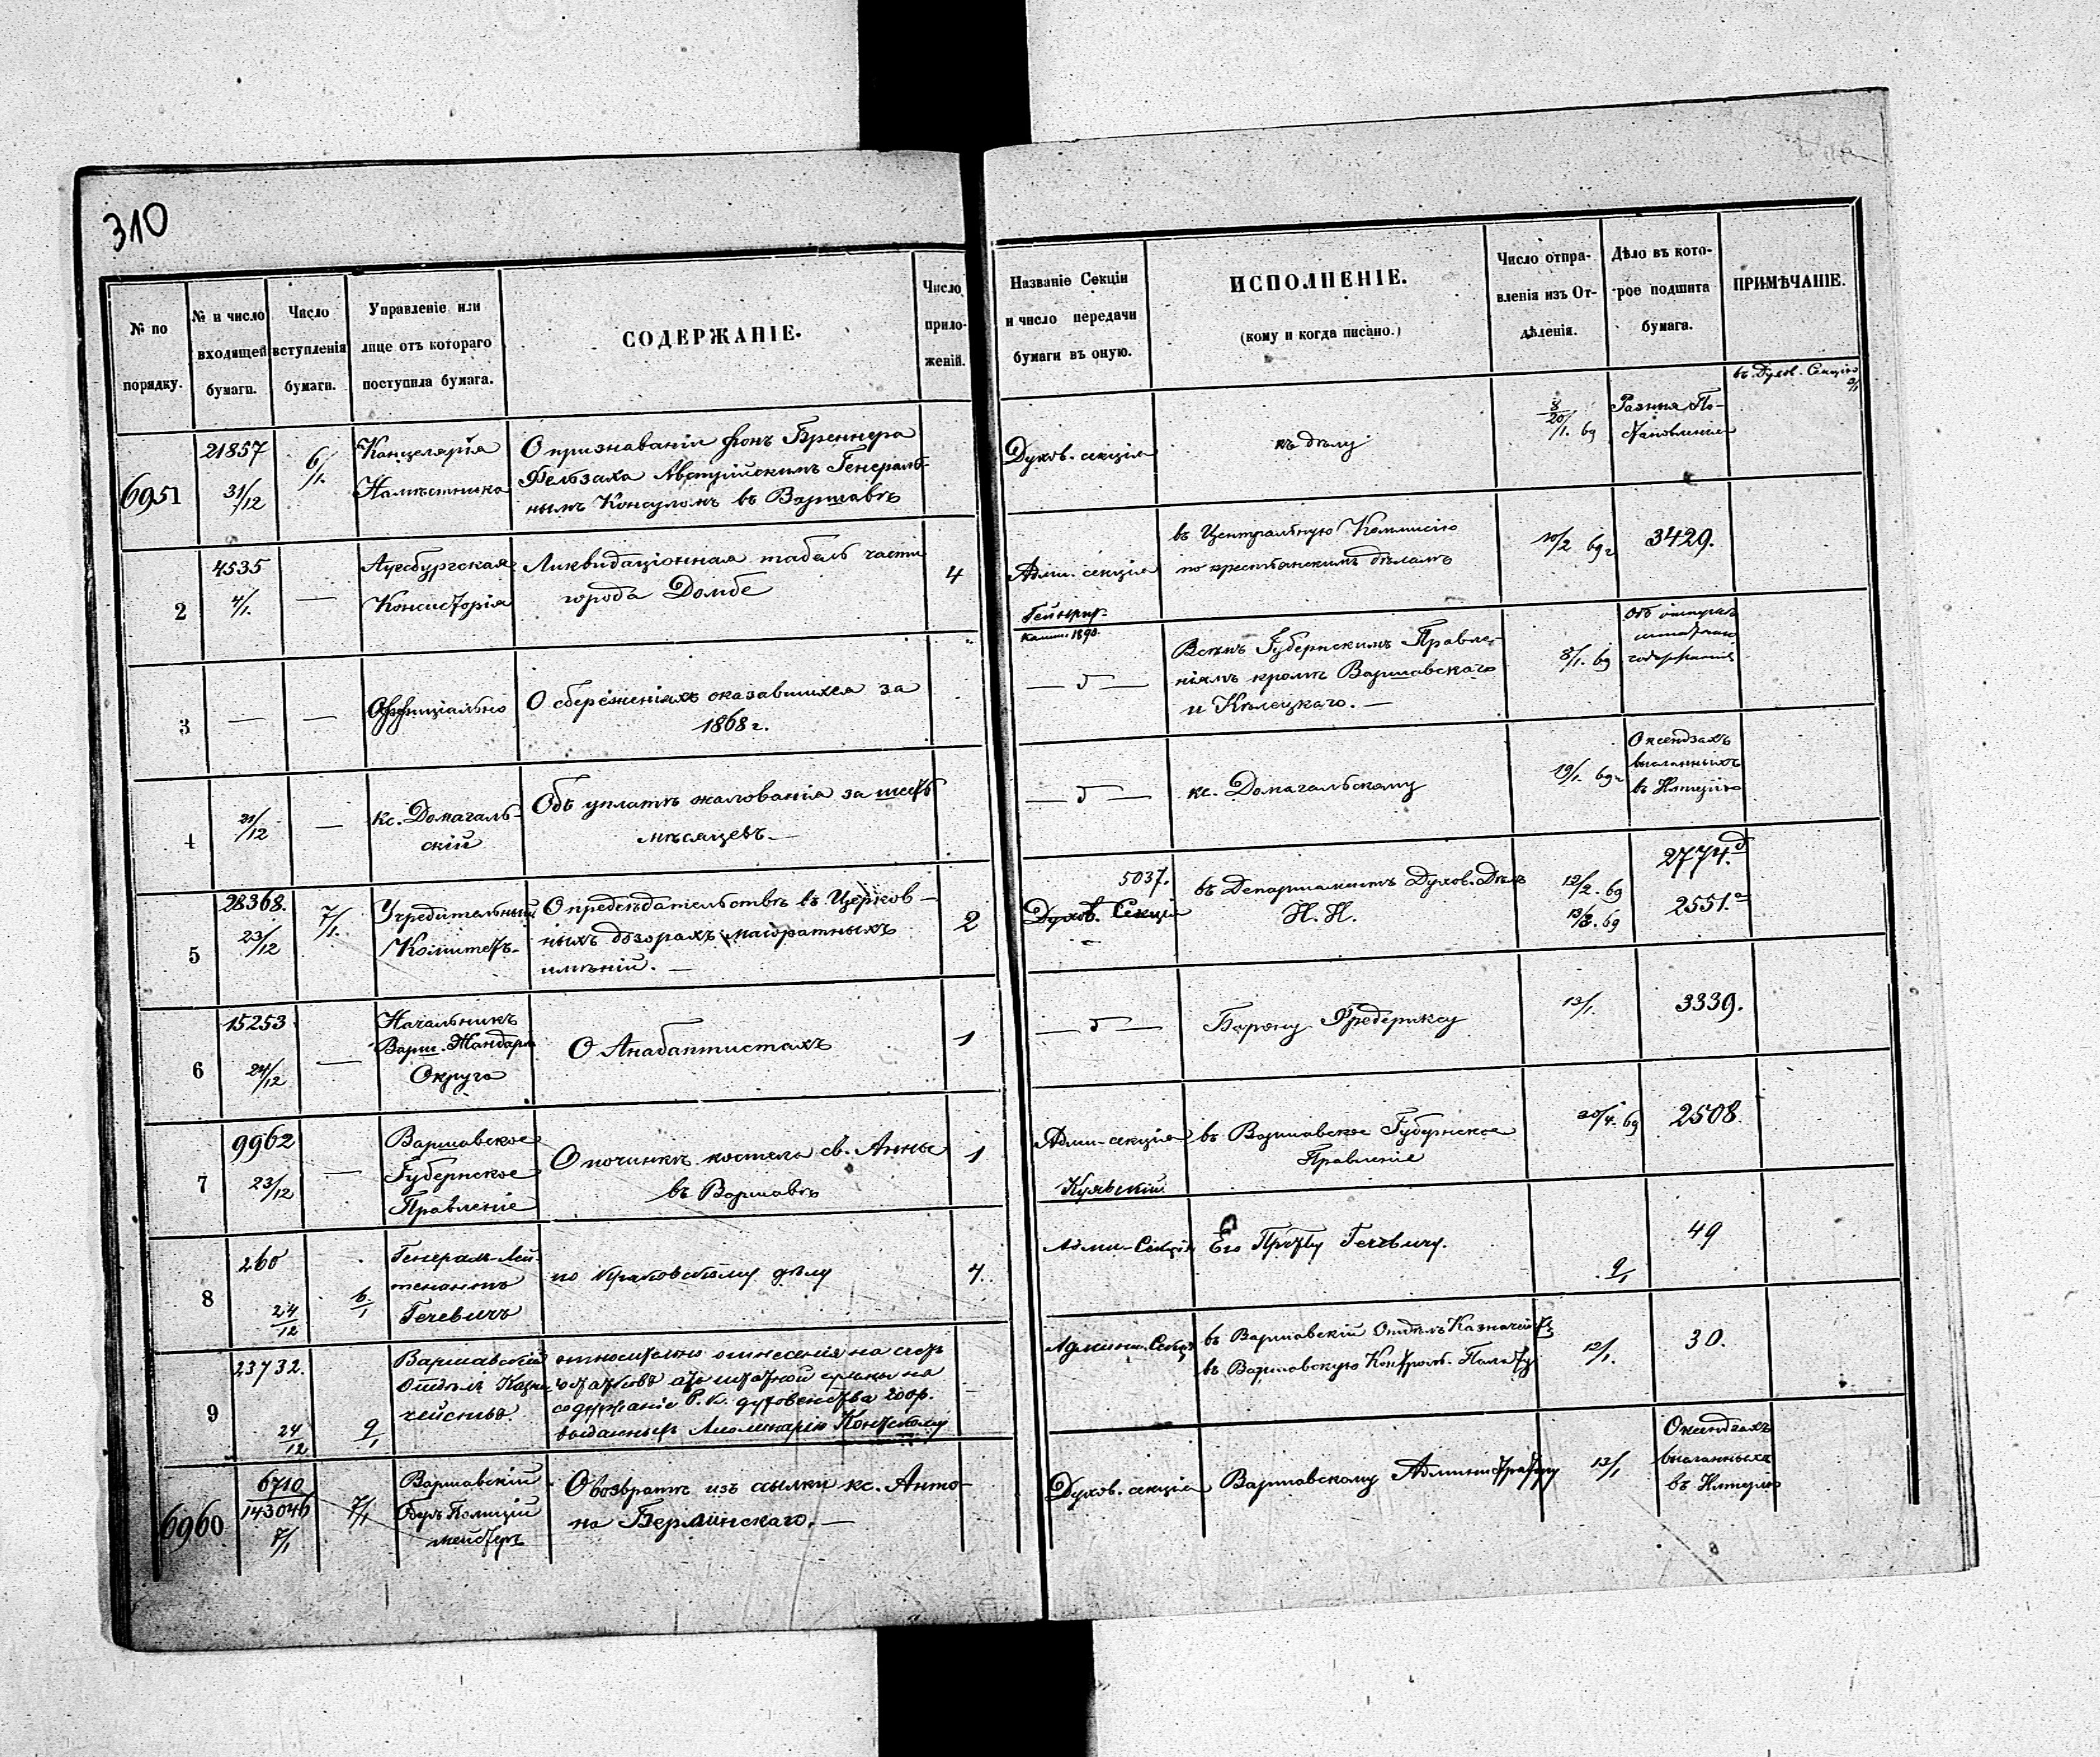 310
№ по
порядку.
№ и число
входящей
бумаги.
Число
вступленія
бумаги.
Управленіе или
лице отъ котораго
поступила бумага.
СОДЕРЖАНІЕ.
Число
прило-
женій.
Названіе Секціи
и число передачи
бумаги въ оную.
ИСПОЛНЕНІЕ.
(кому и когда писано.)
Число отпра-
вленія изъ От-
дѣленія.
Дѣло въ кото-
рое подшита
бумага.
ПРИМѢЧАНІЕ.
6951
21857
31/12
6/1.
Канцелярія
Намѣстника
О признаваніи фонъ Бреннера
Фельзаха Австрійскимъ Генераль-
нымъ Консуломъ въ Варшавѣ
Духов. секція
къ дѣлу
8/20/1. 69
Разныя По-
становленія
въ Духов. Секцію
2
4535
4/1.
—
Аугсбургская
Консисторія
Ликвидаціонная табель части
города Домбе
4
Адми. секція
Гейнрих
Калиш. 1890.
въ Центральную Коммисію
по крестьянскимъ дѣламъ
10/2 69 г
3429.
3
—
—
Оффиціально
О сбереженіяхъ оказавшихся за
1868 г.
— 5 —
Всѣмъ Губернскимъ Правле-
ніямъ кромѣ Варшавскаго
и Кѣлецкаго. —
8/1. 69
Объ отпускѣ
штатнаго
содержанія
4
21/12
—
кс. Домагаль-
скій
Объ уплатѣ жалованія за шесть
мѣсяцевъ. —
— 5 —
кс. Домагальскому
19/1. 69 г
О ксендзахъ
высланныхъ
въ Имперію
5
28368.
23/12
7/1.
Учредительный
Комитетъ.
О предсѣдательствѣ въ Церков-
ныхъ дозорахъ маіоратныхъ
имѣній. —
2
5037.
Духов. Секція
въ Департаментъ Духов. Дѣлъ
И. И.
12/2. 69
13/3. 69
2774. д
2551. а
6
15253
24/12
—
Начальникъ
Варш. Жандарм
Округа
О Анабаптистахъ
1
— 5 —
Барону Фредериксу
13/1.
3339.
7
9962
23/12
—
Варшавское
Губернское
Правленіе
О починкѣ костела св. Анны
въ Варшавѣ
1
Адми-секція
въ Варшавское Губернское
Правленіе
20/4. 69
2508.
8
260
24/12
6/1
Генералъ-Лей-
тенантъ
Гечевичъ
по Краковскому дѣлу
4.
Куявскій
Адми-Секція
Его Прству Гечевичу.
9/1
49
9
23732.
24/12
9/1
Варшавскій
Отдѣлъ Казна-
чейства.
относительно отнесенія на счетъ
остатковъ отъ штатной суммы на
содержаніе Р. К. духовенства 200 р.
выданныхъ Аполинарію Контскому
Админ. Секція
въ Варшавскій Отдѣлъ Казначейства
въ Варшавскую Контрол. Палату
12/1.
30.
6960
6710
143046
7/1
7/1
Варшавскій
Оберъ Полицій
мейстеръ
О возвратѣ изъ ссылки кс. Анто-
на Берлинскаго. —
Духов. секція
Варшавскому Администратору
13/1
О ксендзахъ
высланныхъ
въ Имперію